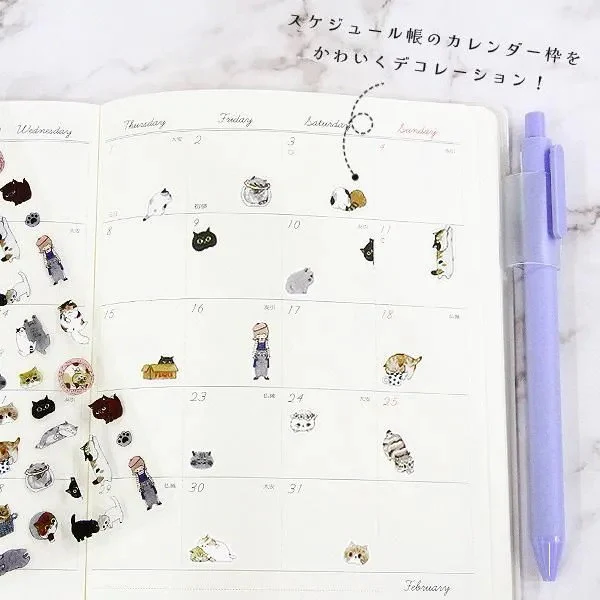 スケジュール帳のカレンダー枠を
かわいくデコレーション！
Wednesday Thursday Friday Saturday Sunday
1 2 3 4
8 9 10 11
15 16 17 18
23 24 25
29 30 31
February